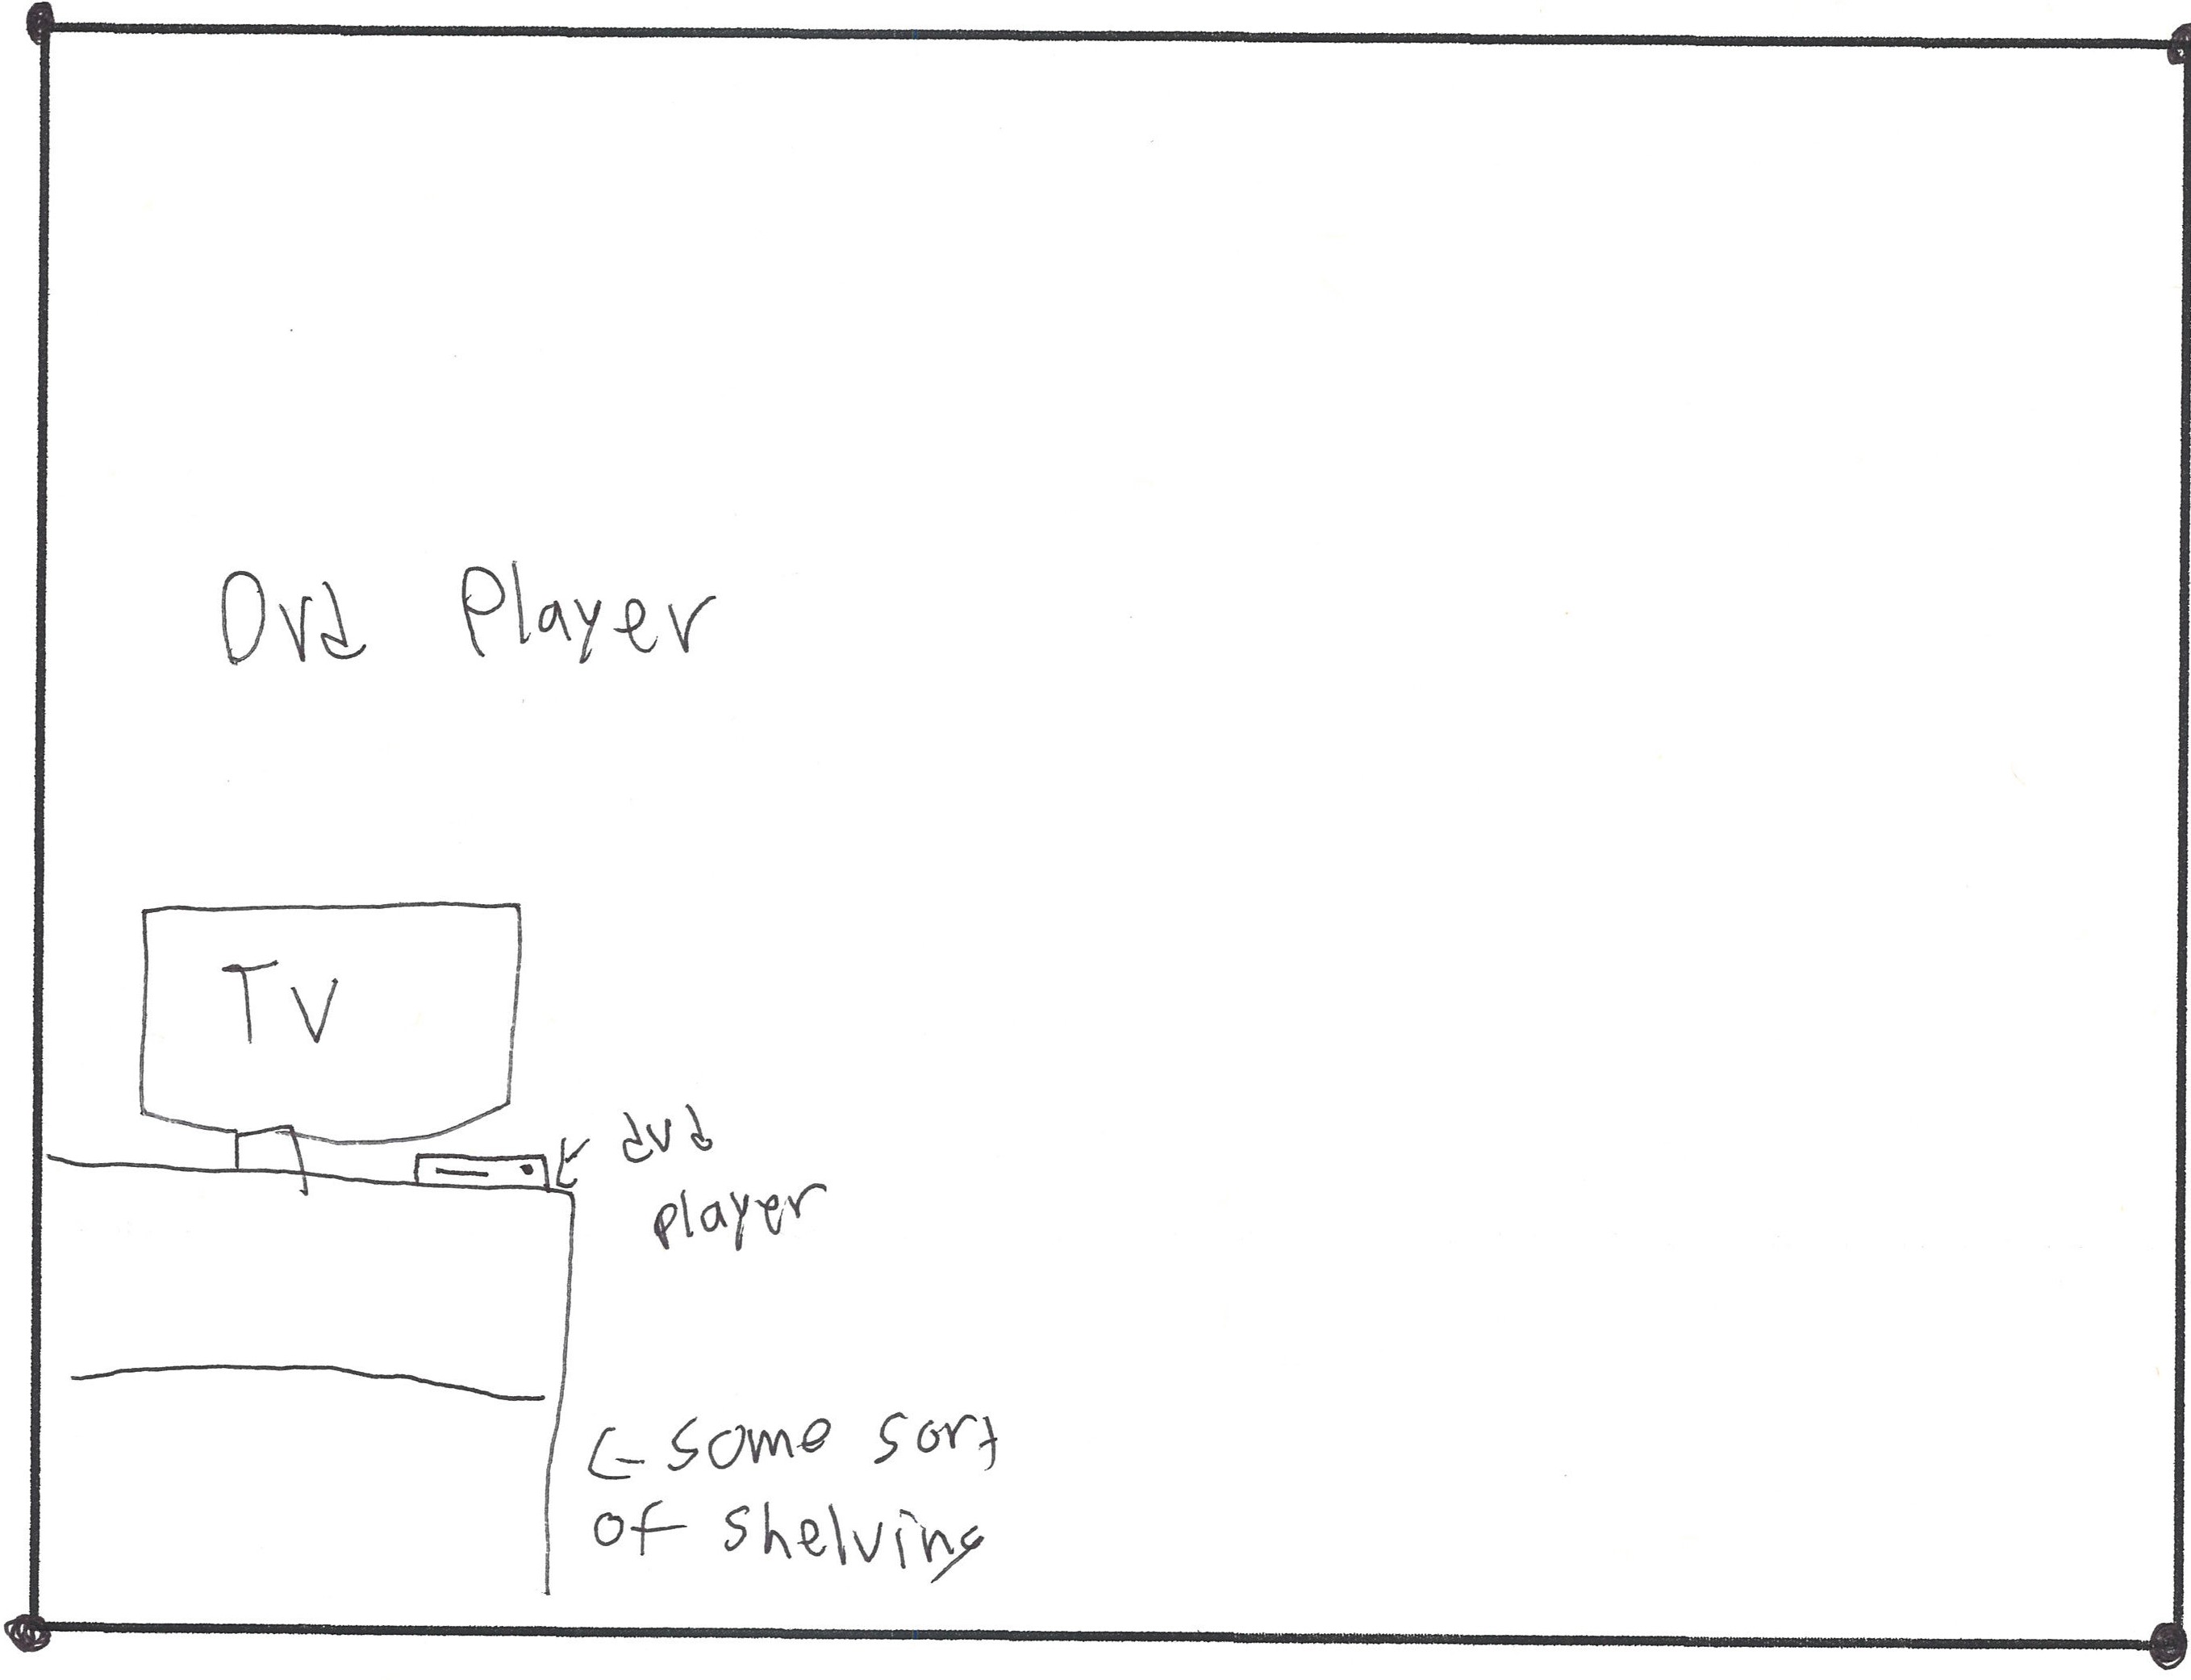 Dvd Player
TV
dvd
player
some sort
of shelving